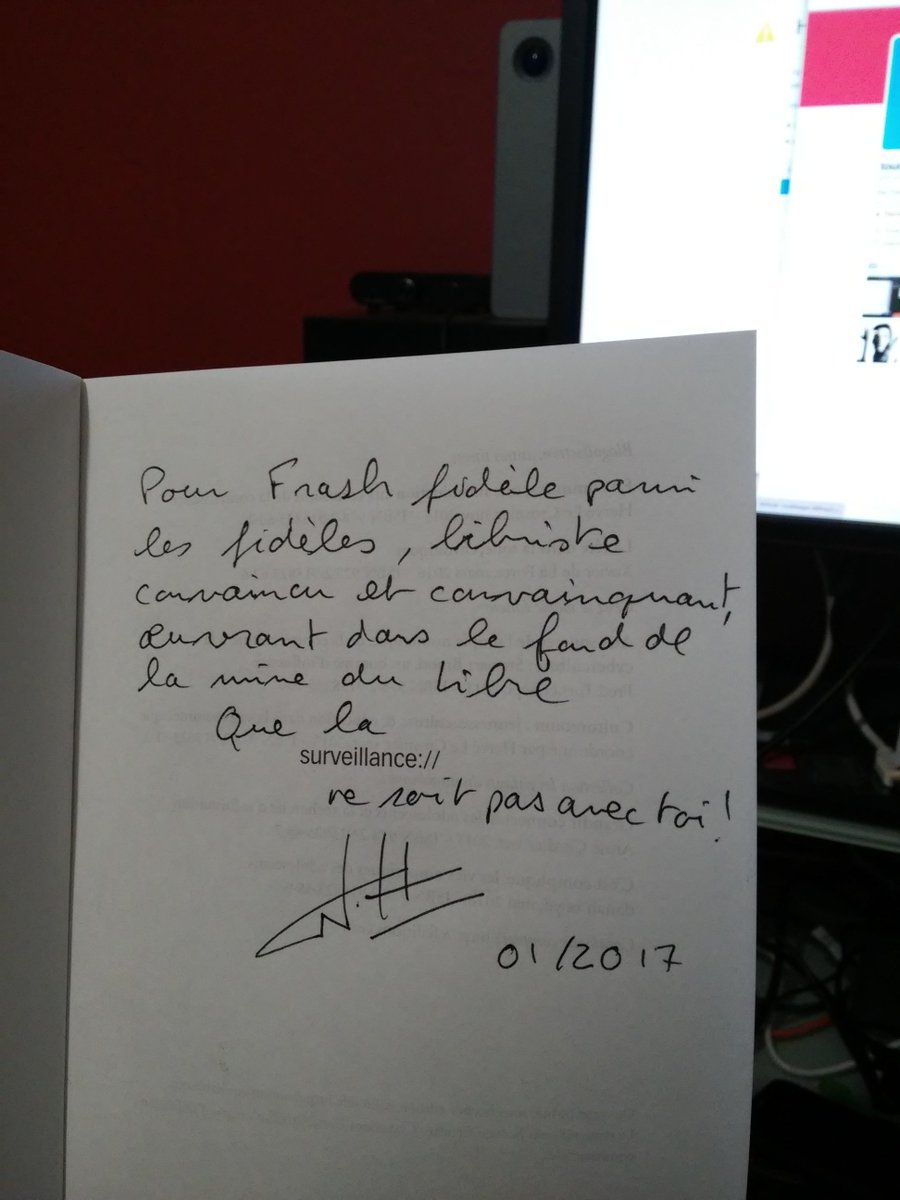 Pour Frash fidèle parmi
les fidèles, libriste
convaincu et convainquant,
œuvrant dans le fond de
la mine du Libre
Que la
surveillance://
ne soit pas avec toi !
01/2017